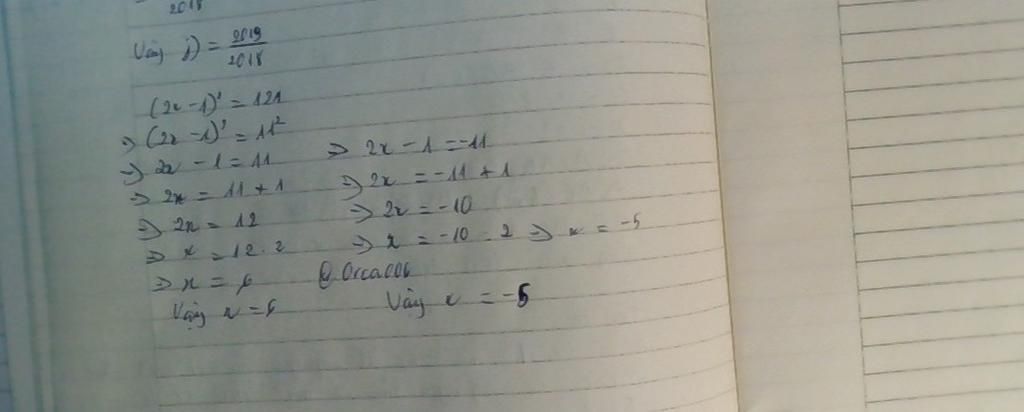 2018
Vậy j) = 2019/2018
(2x - 1)² = 121
⇒ (2x - 1)² = 11²
⇒ 2x - 1 = 11 ⇒ 2x - 1 = -11
⇒ 2x = 11 + 1 ⇒ 2x = -11 + 1
⇒ 2x = 12 ⇒ 2x = -10
⇒ x = 12 : 2 ⇒ x = -10 : 2 ⇒ x = -5
⇒ x = 6 @Orcacob
Vậy x = 6 Vậy x = -5